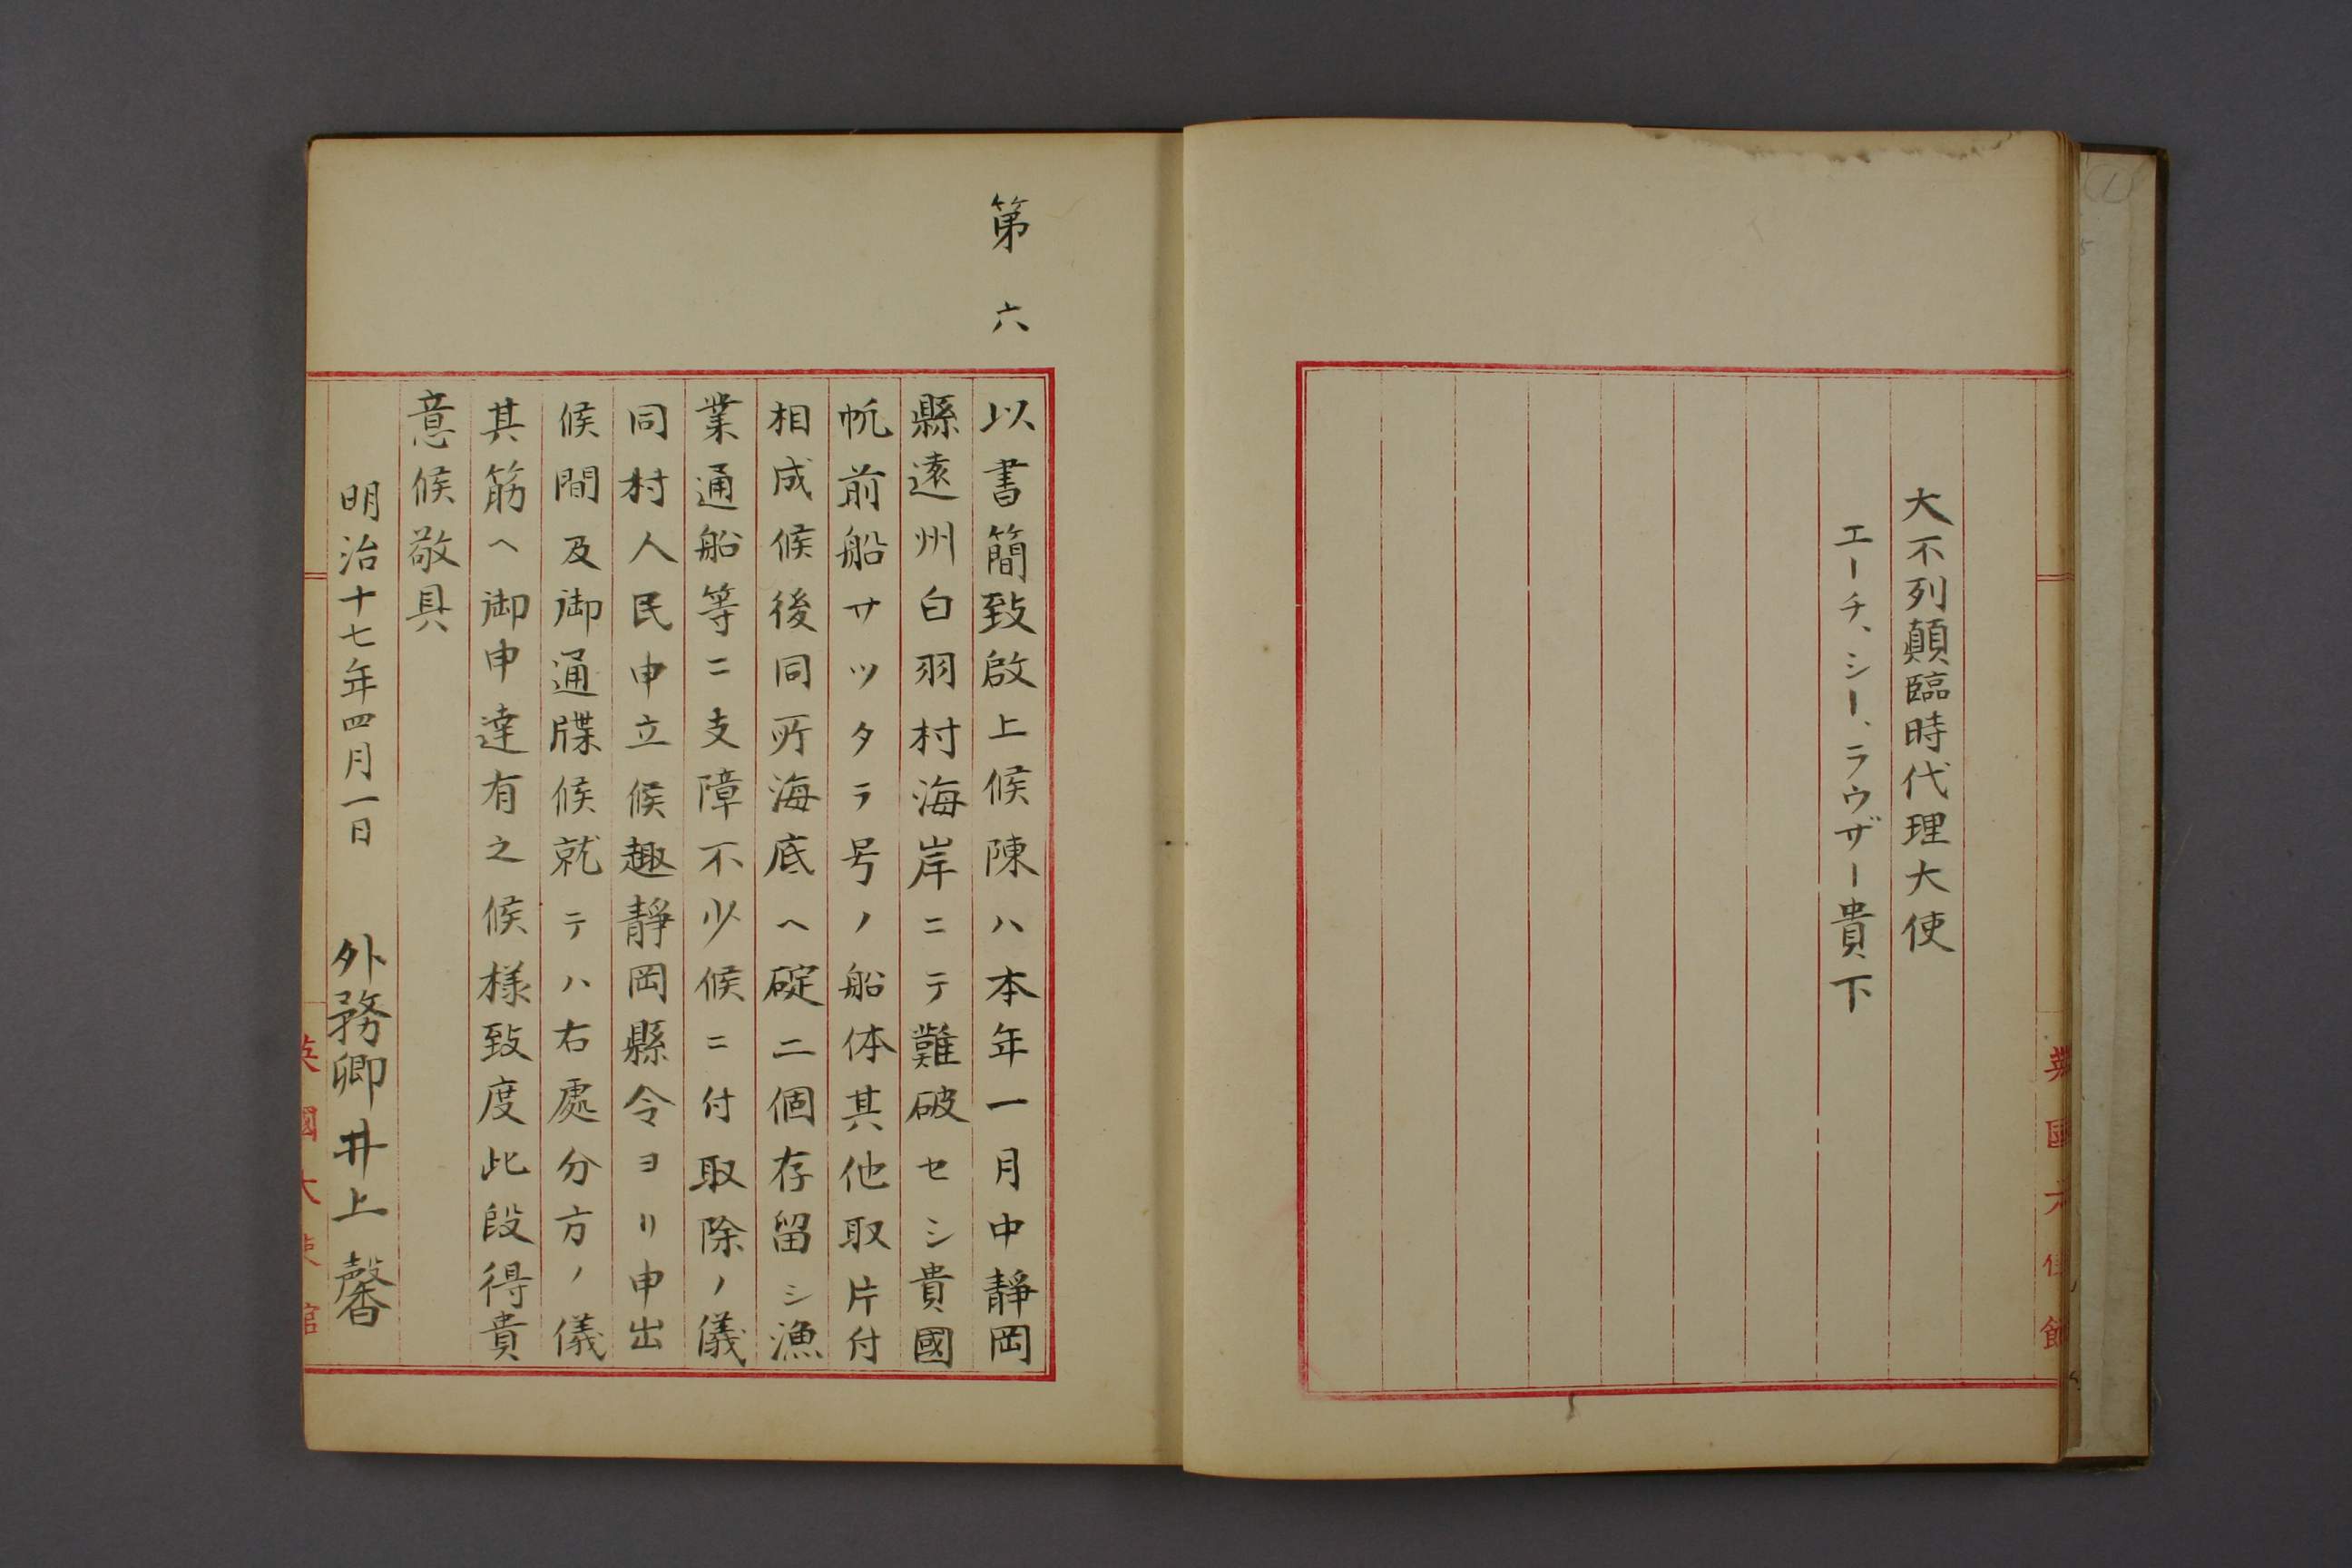 大不列顛臨時代理大使
エーチ、シー、ラウザー貴下
英國大使館
第六
以書簡致啟上候陳ハ本年一月中靜岡
縣遠州白羽村海岸ニテ難破セシ貴國
帆前船サツタラ号ノ船体其他取片付
相成候後同所海底ヘ碇二個存留シ漁
業通船等ニ支障不少候ニ付取除ノ儀
同村人民申立候趣靜岡縣令ヨリ申出
候間及御通牒候就テハ右處分方ノ儀
其筋ヘ御申達有之候様致度此段得貴
意候敬具
明治十七年四月一日 外務卿井上馨
英國大使館